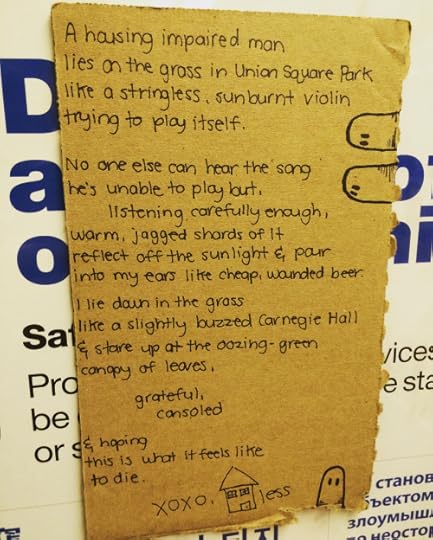 A housing impaired man
lies on the grass in Union Square Park
like a stringless, sunburnt violin
trying to play itself.
No one else can hear the song
he's unable to play but,
listening carefully enough,
warm, jagged shards of it
reflect off the sunlight & pour
into my ears like cheap, wounded beer.
I lie down in the grass
like a slightly buzzed Carnegie Hall
& stare up at the oozing-green
canopy of leaves,
grateful,
consoled
& hoping
this is what it feels like
to die.
xoxo, less
D
a
o
Sa
Pro
be
or s
vices
e sta
станов
бъектом
злоумышл
по неостор